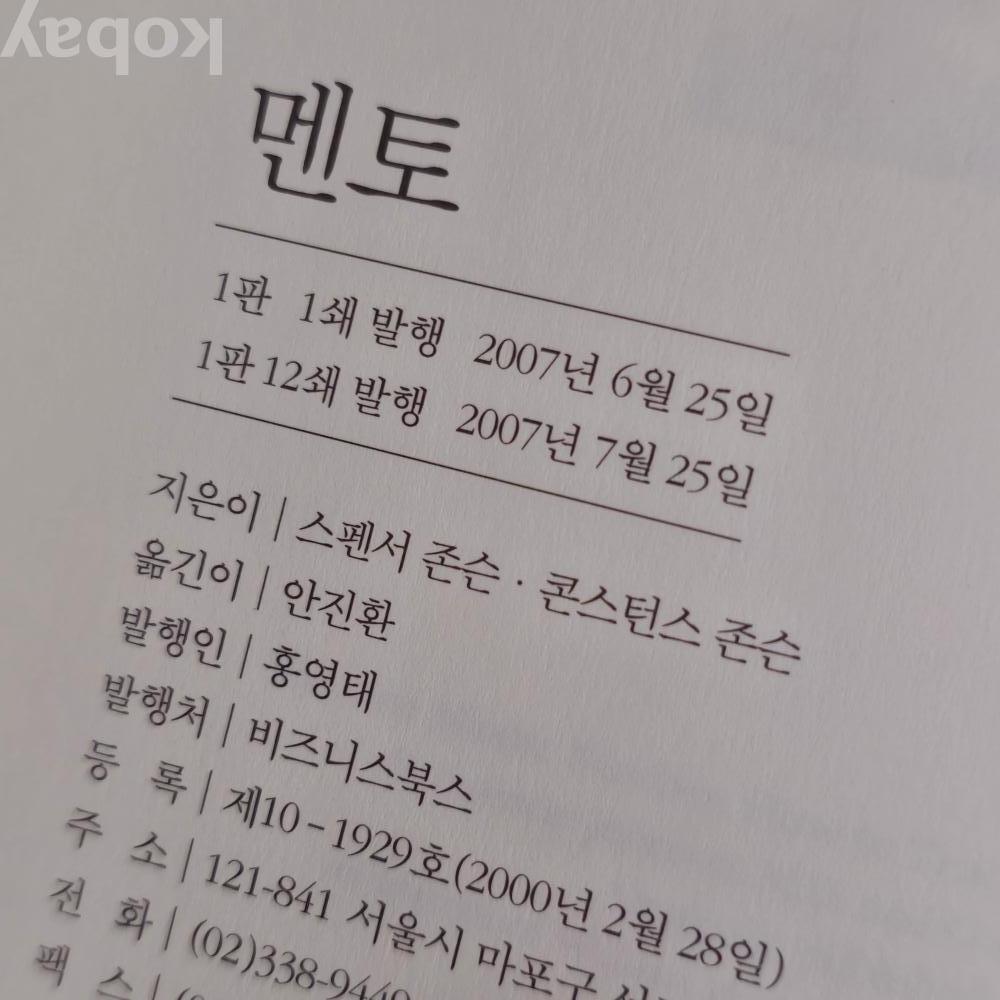 kobay
멘토
1판 1쇄 발행 2007년 6월 25일
1판 12쇄 발행 2007년 7월 25일
지은이 | 스펜서 존슨 · 콘스턴스 존슨
옮긴이 | 안진환
발행인 | 홍영태
발행처 | 비즈니스북스
등 록 | 제10-1929호(2000년 2월 28일)
주 소 | 121-841 서울시 마포구
전 화 | (02)338-9449
팩 스 |